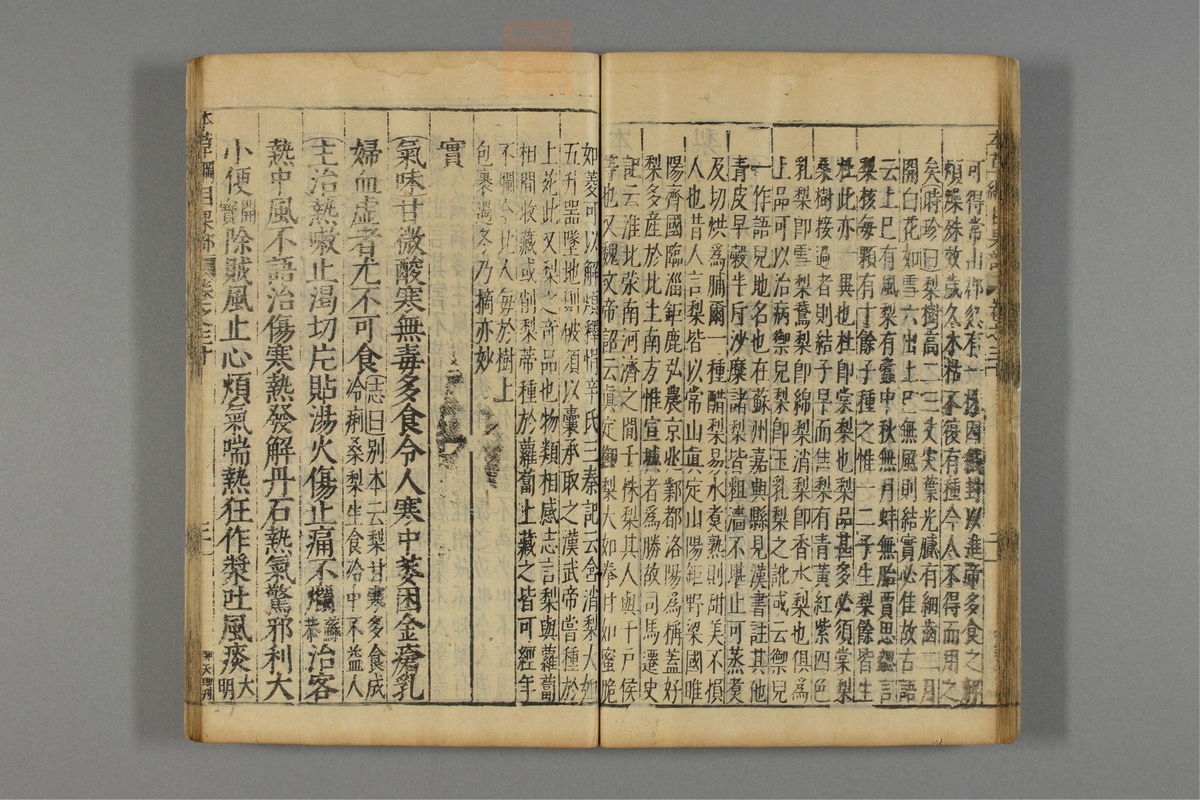 可得常山郡忽有一株因封以進帝多食之解
煩燥殊效歲久木枯不復有種今人不得而用之
矣時珍曰梨樹高二三丈尖葉光膩有細齒二月
開白花如雪六出上巳無風則結實必佳故古語
云上巳有風梨有蠹中秋無月蚌無胎賈思勰言
梨核每顆有十餘子種之惟一二子生梨餘皆生
杜此亦一異也杜即棠梨也梨品甚多必須棠梨
桑樹接過者則結子早而佳梨有青黃紅紫四色
乳梨即雪梨鵞梨即綿梨消梨即香水梨也俱爲
上品可以治病御兒梨即玉乳梨之訛或云御兒
一作語兒地名也在蘇州嘉興縣見漢書註其他
青皮早穀半斤沙糜諸梨皆粗濇不堪止可蒸煑
及切烘爲脯爾一種醋梨易水煑熟則甜美不損
人也昔人言梨皆以常山真定山陽鉅野梁國睢
陽齊國臨淄鉅鹿弘農京兆鄴都洛陽爲稱蓋好
梨多産於北土南方惟宣城者爲勝故司馬遷史
記云淮北滎南河濟之間千株梨其人與千戶侯
等也又魏文帝詔云真定御梨大如拳甘如蜜脆
如菱可以解煩釋悁辛氏三秦記云含消梨大如
五升器墜地則破須以囊承取之漢武帝嘗種於
上苑此又梨之奇品也物類相感志言梨與蘿蔔
相間收藏或削梨蒂種於蘿蔔上藏之皆可經年
不爛今北人每於樹上
包裹過冬乃摘亦妙
實
氣味甘微酸寒無毒多食令人寒中萎困金瘡乳
婦血虛者尤不可食志曰别本云梨甘寒多食成
冷痢桑梨生食冷中不益人
主治熱嗽止渴切片貼湯火傷止痛不爛蘇恭治客
熱中風不語治傷寒熱發解丹石熱氣驚邪利大
小便開寶除賊風止心煩氣喘熱狂作漿吐風痰大明